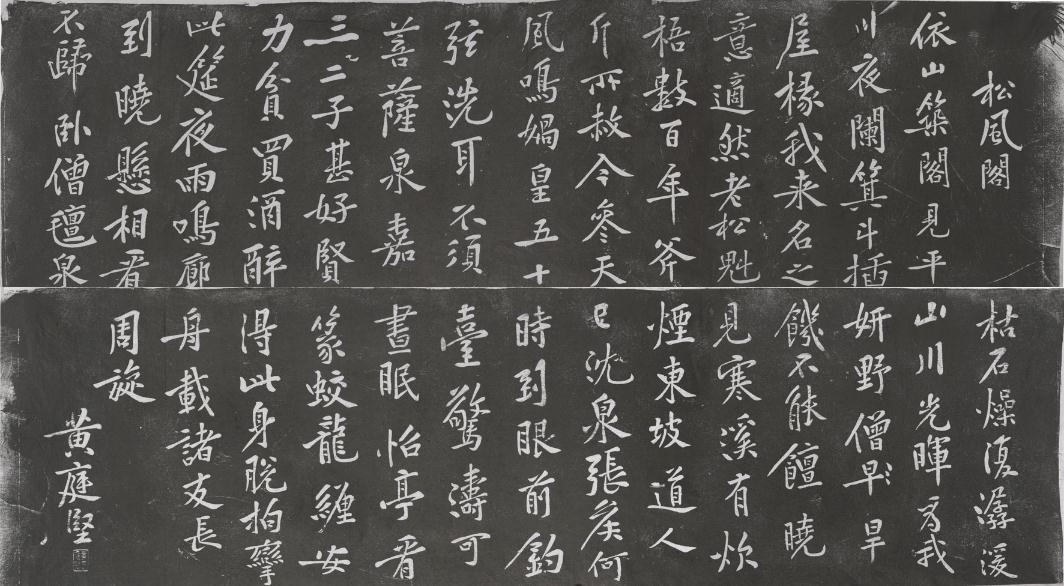 松風閣
依山築閣見平
川夜闌箕斗插
屋椽我来名之
意適然老松魁
梧數百年斧
斤所赦今參天
風鳴媧皇五十
弦洗耳不須
菩薩泉嘉
三二子甚好賢
力貧買酒醉
此筵夜雨鳴廊
到曉懸相看
不歸卧僧氈泉
枯石燥復潺湲
山川光暉為我
妍野僧早旱
饑不能饘曉
見寒溪有炊
煙東坡道人
已沈泉張矦何
時到眼前釣
臺驚濤可
晝眠怡亭看
篆蛟龍纏安
得此身脫拘攣
舟載諸友長
周旋
黃庭堅